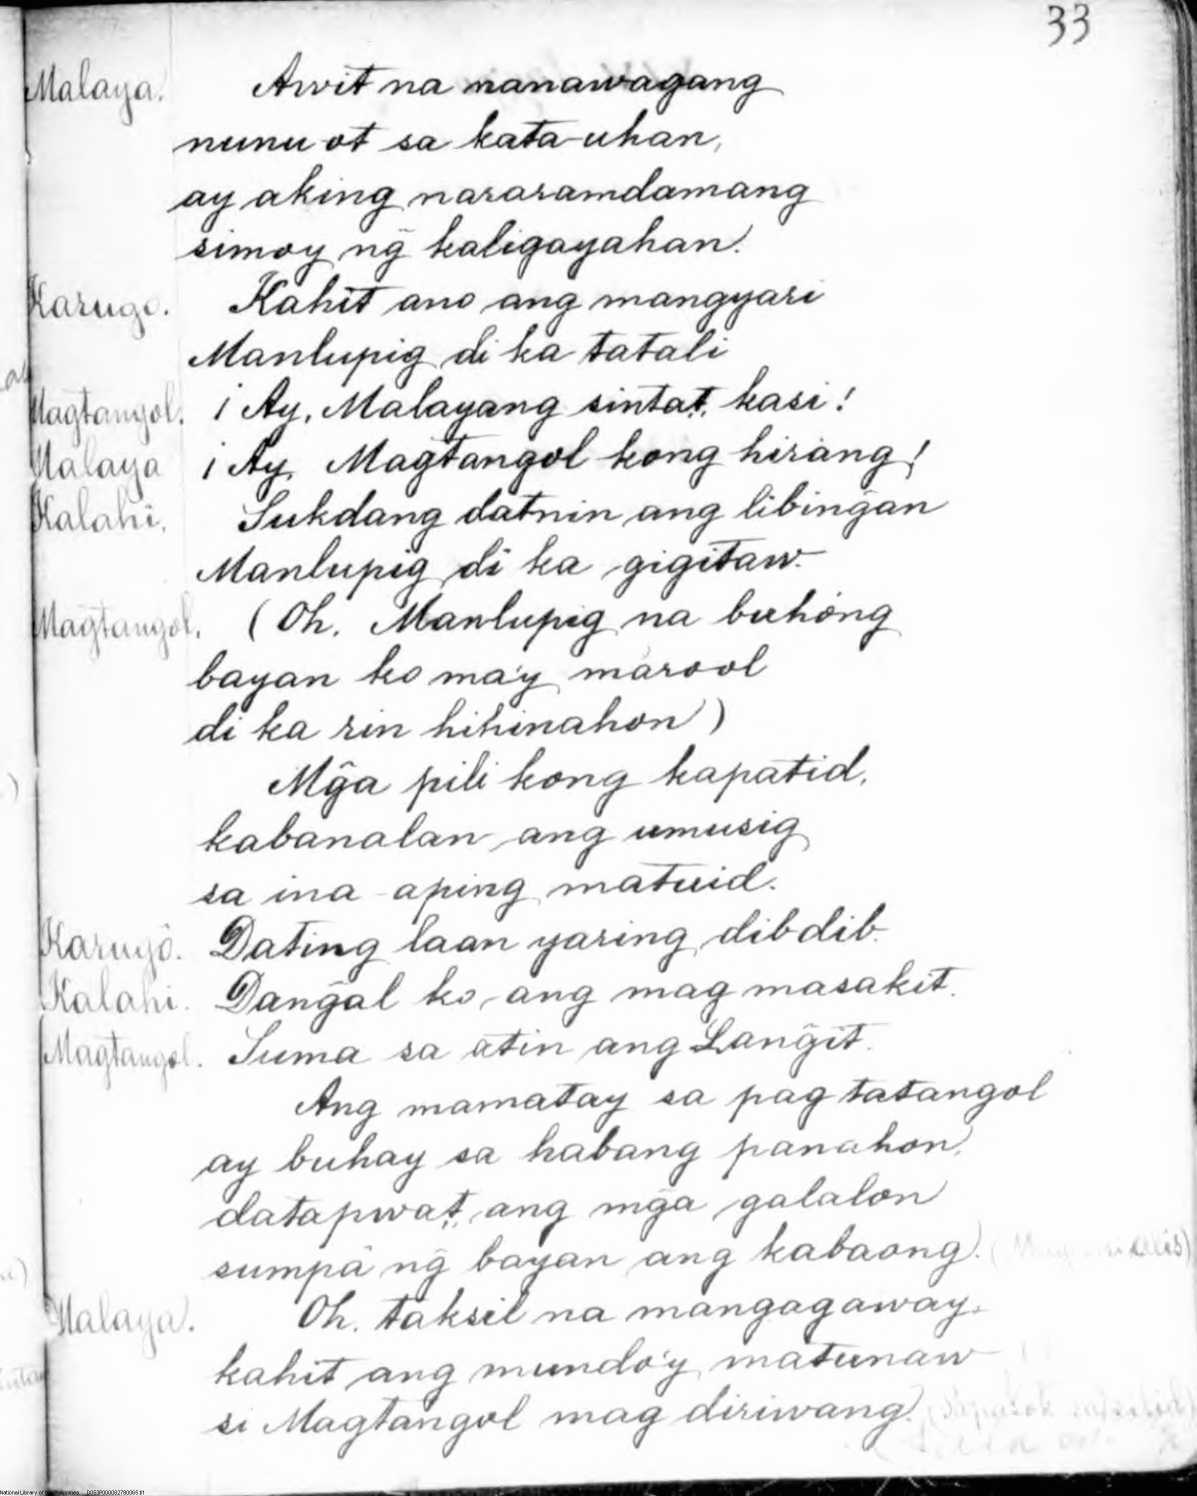 33
Malaya. Awit na nanawagang
nunu-ot sa kata-uhan,
ay aking nararamdamang
simoy ng̃ kaligayahan.
Karugo. Kahit ano ang mangyari
Manlupig di ka tatali
Magtangol. ¡Ay, Malayang sintat, kasi!
Malaya ¡Ay, Magtangol kong hirang!
Kalahi. Sukdang datnin ang libing̃an
Manlupig di ka gigitaw.
Magtangol. (Oh, Manlupig na buhóng
bayan ko ma'y marool
di ka rin hihinahon)
Mg̃a pili kong kapatid,
kabanalan ang umusig
sa ina-aping matuid.
Karugô. Dating laan yaring dibdib.
Kalahi. Dang̃al ko ang mag masakit.
Magtangol. Suma sa atin ang Lang̃it.
Ang mamatay sa pag tatangol
ay buhay sa habang panahon,
datapwa't, ang mg̃a galalon
sumpâ ng̃ bayan ang kabaong. alis)
Malaya. Oh, taksil na mangagaway.
kahit ang mundo'y matunaw
si Magtangol mag diriwang.